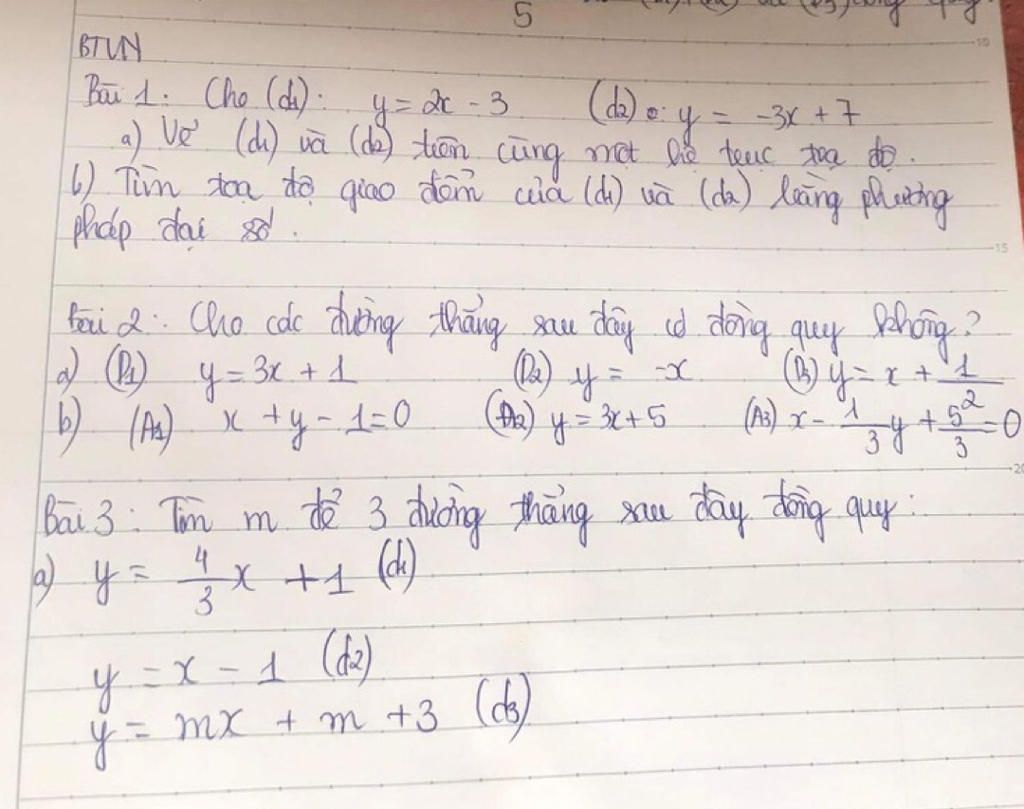 5
BTVN
Bài 1: Cho (d1): y = 2x - 3 (d2): y = -3x + 7
a) Vẽ (d1) và (d2) trên cùng một hệ trục toạ độ.
b) Tìm toạ độ giao điểm của (d1) và (d2) bằng phương
pháp đại số.
Bài 2: Cho các đường thẳng sau đây có đồng quy không?
a) (D1) y = 3x + 1 (D2) y = -x (D3) y = x + 1/2
b) (Δ1) x + y - 1 = 0 (Δ2) y = 3x + 5 (Δ3) x - 1/3 y + 5/3 = 0
Bài 3: Tìm m để 3 đường thẳng sau đây đồng quy:
a) y = 4/3 x + 1 (d1)
y = x - 1 (d2)
y = mx + m + 3 (d3)